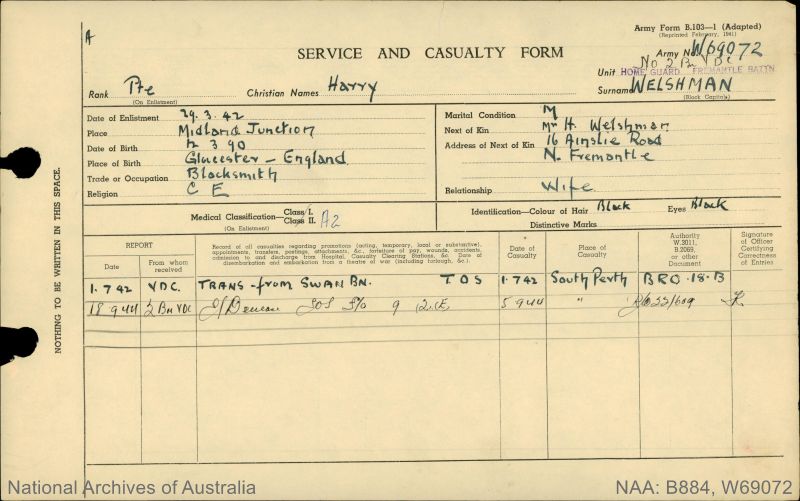 A
Army Form B.103—1 (Adapted)
(Reprinted February, 1941)
SERVICE AND CASUALTY FORM
Army No. W69072
No 2 Bn VDC
Unit HOME GUARD FREMANTLE BATTN
Rank Pte Christian Names Harry Surname WELSHMAN
(On Enlistment) (Block Capitals)
Date of Enlistment 29.3.42
Place Midland Junction
Date of Birth 12 3 90
Place of Birth Gloucester – England
Trade or Occupation Blacksmith
Religion C E
Marital Condition M
Next of Kin Mrs H. Welshman
Address of Next of Kin 16 Ainslie Road
N. Fremantle
Relationship Wife
Medical Classification— Class I. Class II. A2
(On Enlistment)
Identification—Colour of Hair Black Eyes Black
Distinctive Marks
REPORT
Date
From whom received
Record of all casualties regarding promotions (acting, temporary, local or substantive), appointments, transfers, postings, attachments, &c., forfeiture of pay, wounds, accidents, admission to and discharge from Hospital, Casualty Clearing Stations, &c. Date of disembarkation and embarkation from a theatre of war (including furlough, &c.)
Date of Casualty
Place of Casualty
Authority W.3011, B.2069, or other document
Signature of Officer Certifying Correctness of Entries
1.7.42 VDC. TRANS from SWAN BN. T O S 1.7.42 South Perth BRO.18.B
18 9 44 2 Bn VDC SOS 5 9 44 "
NOTHING TO BE WRITTEN IN THIS SPACE.
National Archives of Australia
NAA: B884, W69072